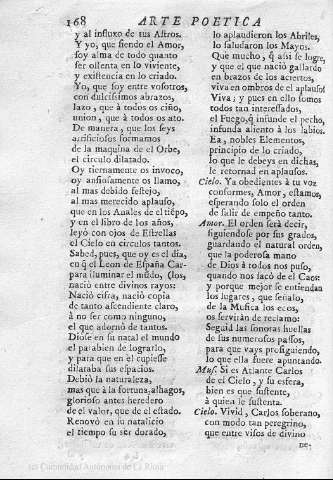 168 ARTE POETICA
y al influxo de sus Astros.
Y yo, que siendo el Amor,
soy alma de todo quanto
ser ostenta en lo viviente,
y existencia en lo criado.
Yo, que soy entre vosotros,
con dulcissimos abrazos,
lazo, que à todos os ciño,
union, que à todos os ato.
De manera, que los seys
artificiosos formamos
de la maquina de el Orbe,
el circulo dilatado.
Oy tiernamente os invoco,
oy ansiosamente os llamo,
al mas debido festejo,
al mas merecido aplauso,
que en los Anales de el tiẽpo,
y en el libro de los años,
leyó con ojos de Estrellas
el Cielo en circulos tantos.
Sabed, pues, que oy es el dia,
en q̃ el Leon de España Car-
para iluminar el mũdo, (los,
nació entre divinos rayos:
Nació cifra, nació copia
de tanto ascendiente claro,
à no ser como ninguno,
el que adornó de tantos.
Diòse en su natal el mundo
el parabien de lograrlo,
y para que en èl cupiesse
dilataba sus espacios.
Debiò la naturaleza,
mas que à la fortuna, alhagos,
glorioso antes heredero
de el valor, que de el estado.
Renovó en su natalicio
el tiempo su ser dorado,
lo aplaudieron los Abriles,
lo saludaron los Mayos.
Què mucho, q̃ assi se logre,
y que el que nació gallardo
en brazos de los aciertos,
viva en ombros de el aplauso!
Viva; y pues en ello somos
todos tan interessados,
el Fuego, q̃ infunde el pecho,
infunda aliento à los labios.
Ea, nobles Elementos,
principio de lo criado,
lo que le debeys en dichas,
le retornad en aplausos.
Cielo. Ya obedientes à tu voz
conformes, Amor, estamos,
esperando solo el orden
de salir de empeño tanto.
Amor. El orden serà decir,
siguiendose por sus grados,
guardando el natural orden,
que la poderosa mano
de Dios à todos nos puso,
quando nos sacó de el Caos:
y porque mejor se entiendan
los lugares, que señalo,
de la Musica los ecos,
os servirán de reclamo:
Seguid las sonoras huellas
de sus numerosos passos,
para que vays prosiguiendo,
lo que ella fuere apuntando.
Mus. Si es Atlante Carlos
de el Cielo, y su esfera,
bien es que sustente,
à quien le sustenta.
Cielo. Vivid, Carlos soberano,
con modo tan peregrino,
que entre visos de divino
ne-
(c) Comunidad Autónoma de La Rioja